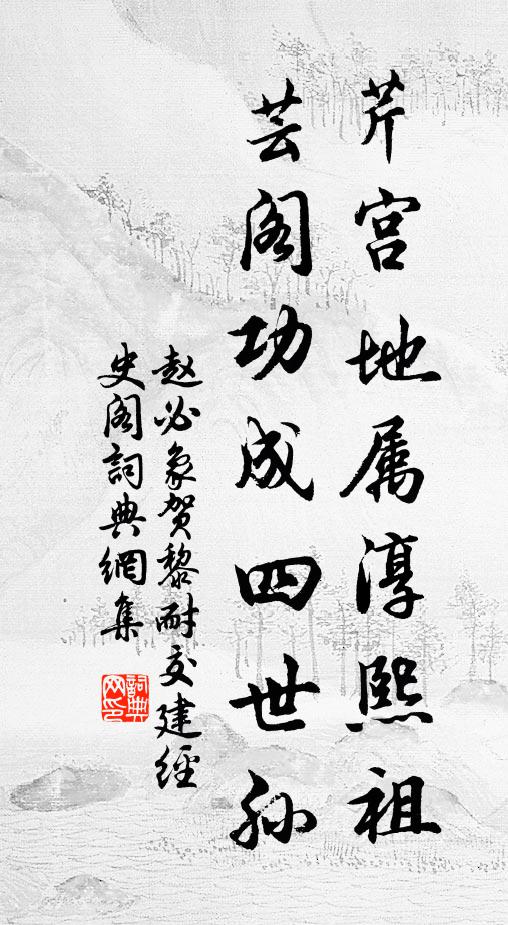 芹宫地属淳熙祖
芸阁功成四世孙
赵必象贺黎耐交建經
史阁詞典網集
詞典
网印